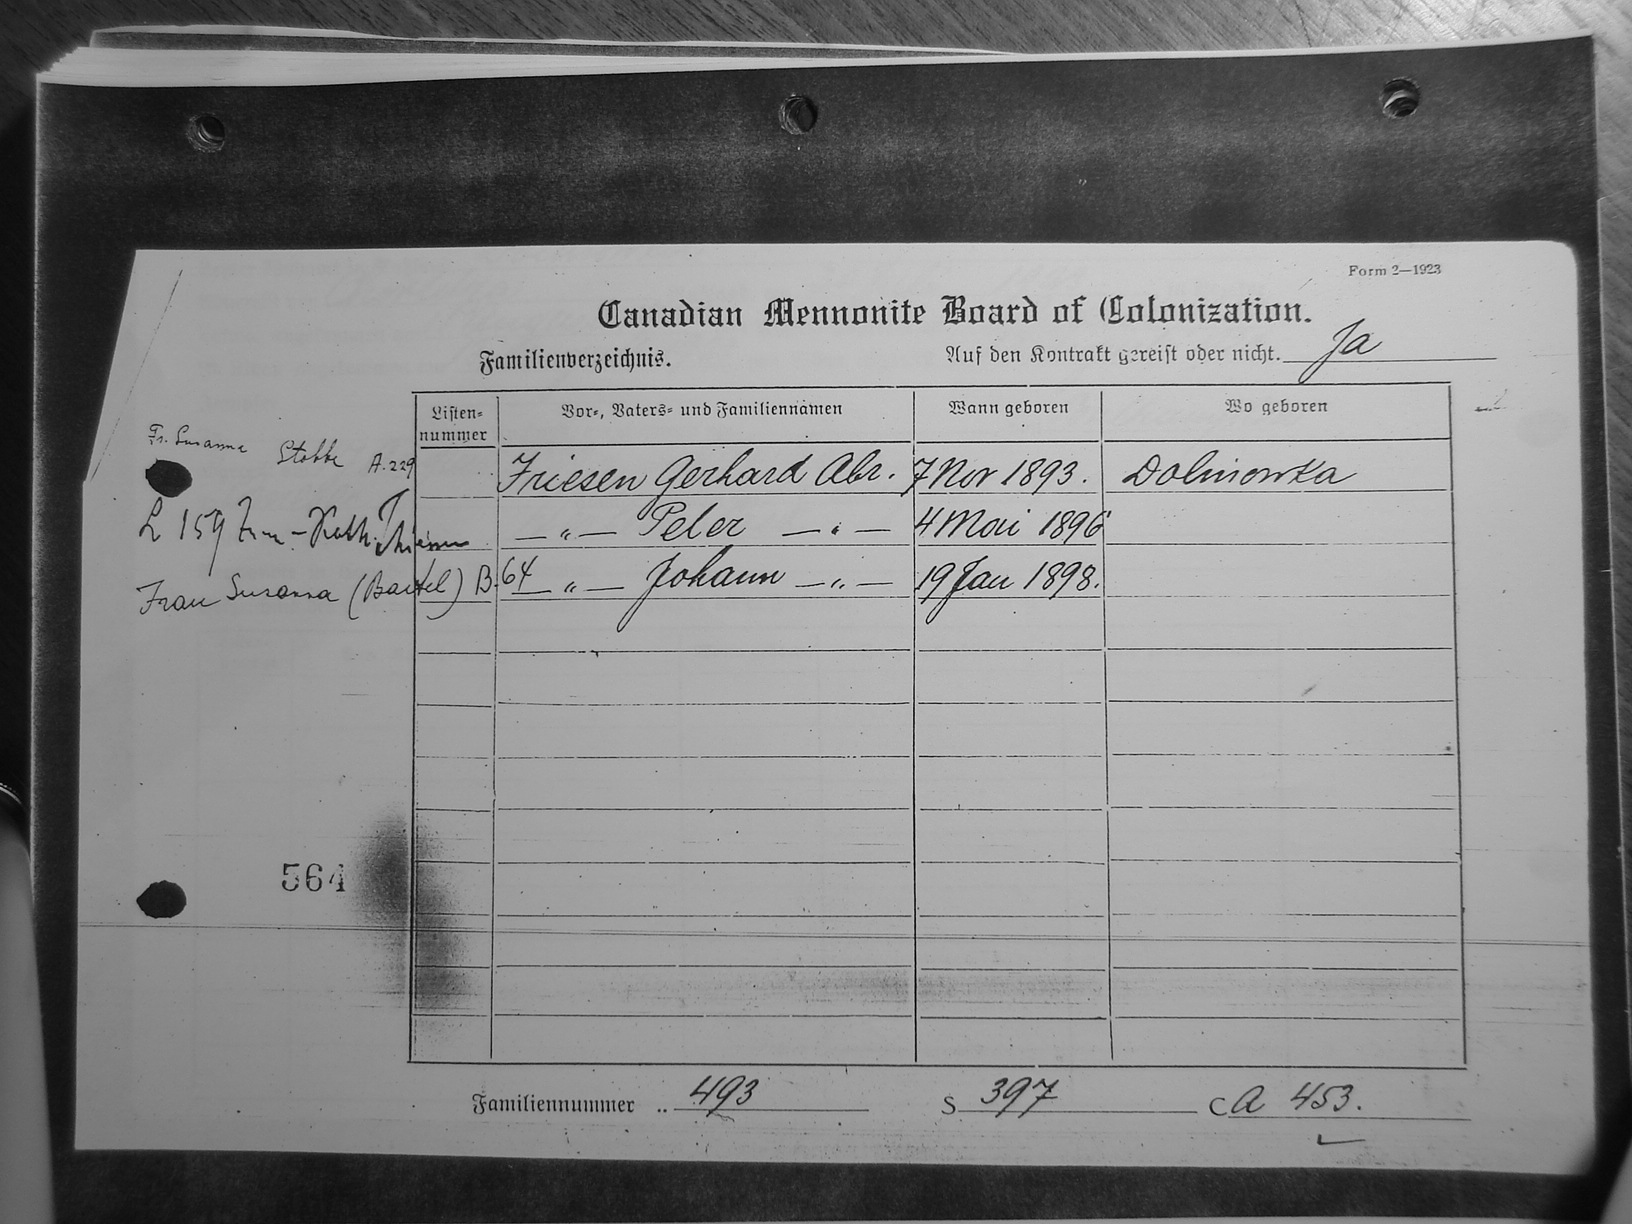 Form 2—1923
Canadian Mennonite Board of Colonization.
Familienverzeichnis. Auf den Kontrakt gereist oder nicht. Ja
Listen-nummer Vor-, Vaters- und Familiennamen Wann geboren Wo geboren
Fr. Susanna Stobbe A.229
Friesen Gerhard Abr. 7 Nov 1893. Dolinowka
L 159 Frau - Kath. Thiessen
— „ — Peter — „ — 4 Mai 1896
Frau Susanna (Bartel) B.64
„ — Johann — „ — 19 Jan 1898.
564
Familiennummer .. 493 S 397 C A 453.